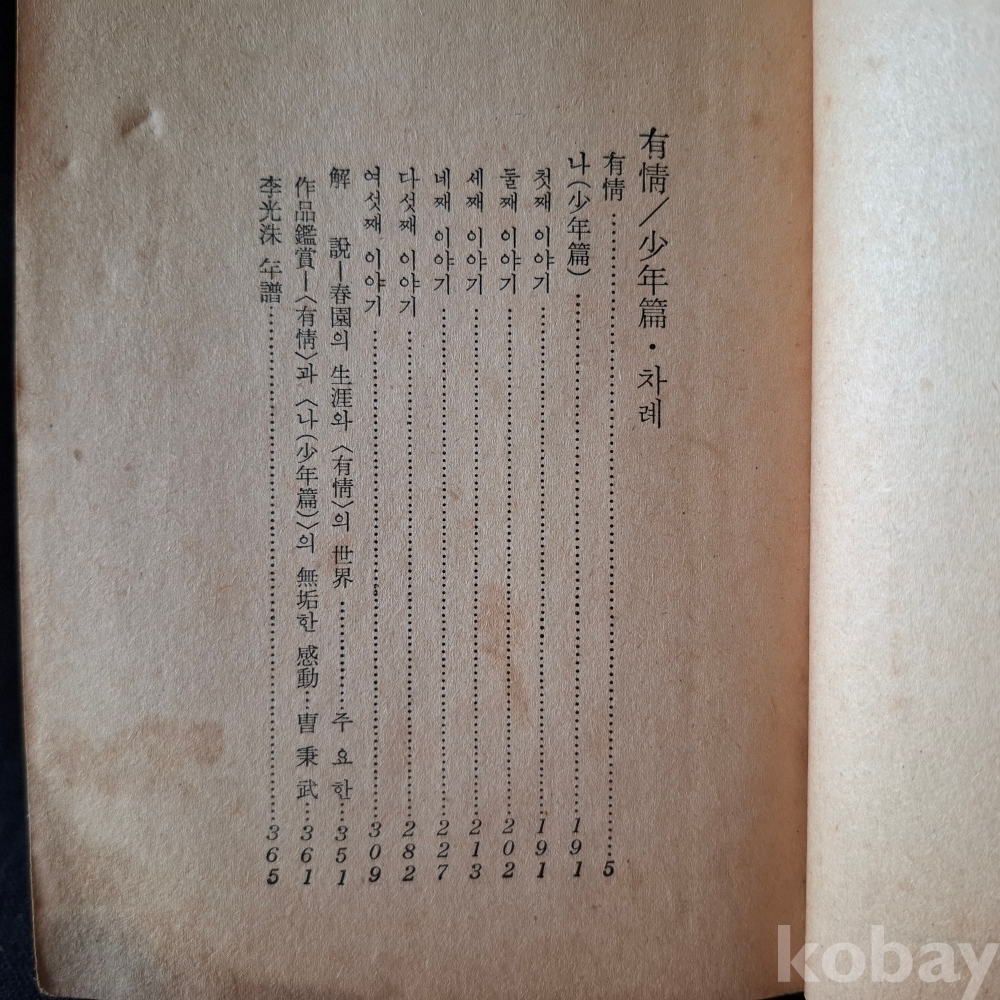 有情/少年篇・차례
有情……5
나(少年篇)……191
첫째 이야기……191
둘째 이야기……202
세째 이야기……213
네째 이야기……227
다섯째 이야기……282
여섯째 이야기……309
解 說—春園의 生涯와 〈有情〉의 世界……주 요 한…351
作品鑑賞—〈有情〉과 〈나(少年篇)〉의 無垢한 感動…曺 秉 武…361
李光洙 年譜……365
kobay